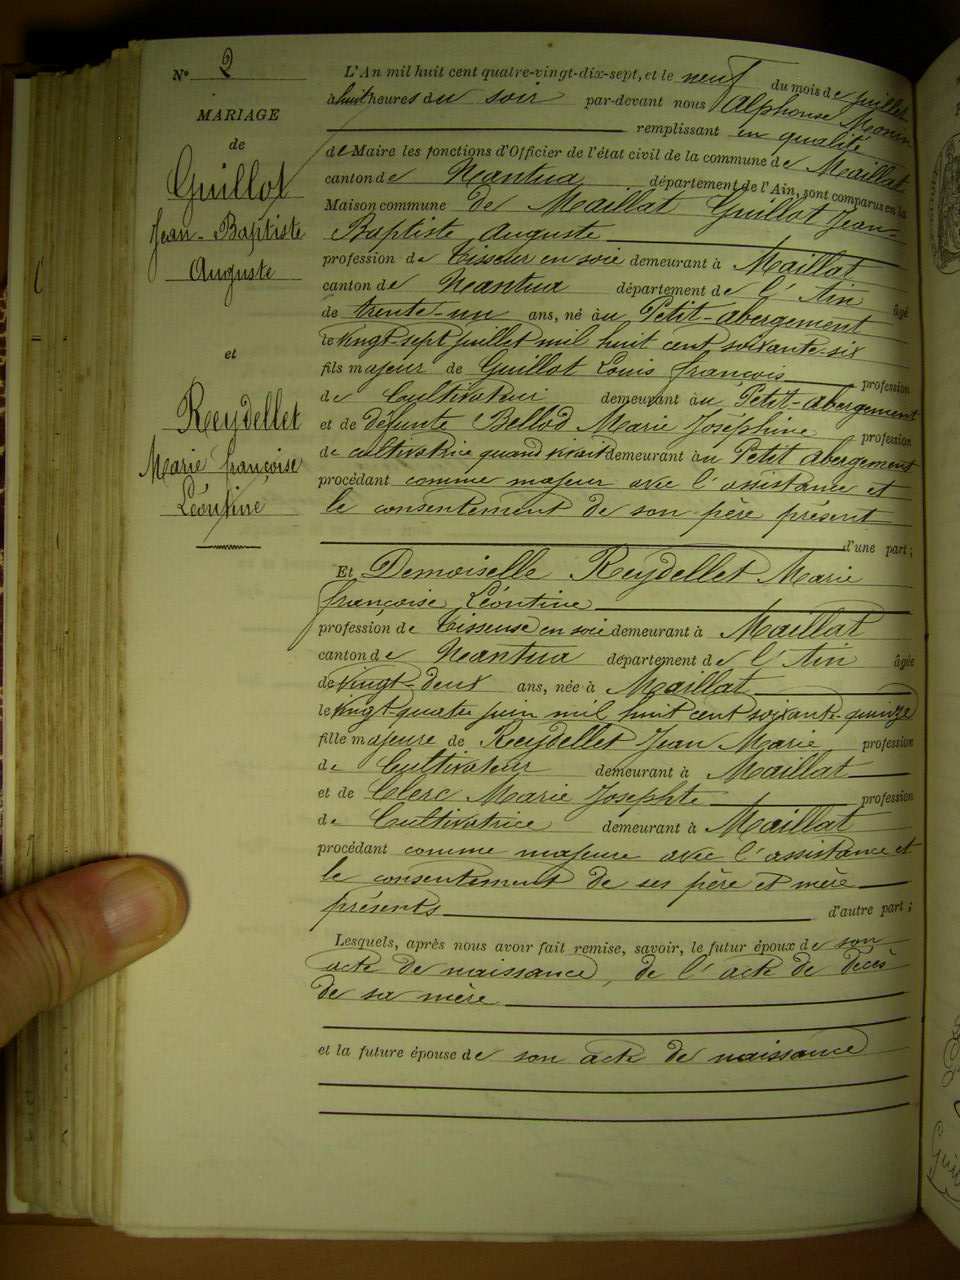 N° 2
MARIAGE
de
Guillot
Jean-Baptiste
Auguste
et
Reydellet
Marie françoise
Léontine
L'An mil huit cent quatre-vingt-dix-sept, et le neuf du mois de juillet
à huit heures du soir par-devant nous Alphonse
remplissant en qualité
de Maire les fonctions d'Officier de l'état civil de la commune de Maillat
canton de Nantua département de l'Ain, sont comparus en la
Maison commune de Maillat Guillot Jean-
Baptiste Auguste
profession de Tisseur en soie demeurant à Maillat
canton de Nantua département de l'Ain âgé
de trente-un ans, né au Petit-abergement
le vingt-sept juillet mil huit cent soixante-six
fils majeur de Guillot Louis françois profession
de Cultivateur demeurant au Petit-abergement
et de défunte Bellod Marie Joséphine profession
de cultivatrice quand vivait demeurant au Petit abergement
procédant comme majeur avec l'assistance et
le consentement de son père présent
d'une part ;
Et Demoiselle Reydellet Marie
françoise Léontine
profession de Tisseuse en soie demeurant à Maillat
canton de Nantua département de l'Ain âgée
de vingt-deux ans, née à Maillat
le vingt-quatre juin mil huit cent soixante-quinze
fille majeure de Reydellet Jean Marie profession
de Cultivateur demeurant à Maillat
et de Clerc Marie Josephte profession
de Cultivatrice demeurant à Maillat
procédant comme majeure avec l'assistance et
le consentement de ses père et mère
présents d'autre part ;
Lesquels, après nous avoir fait remise, savoir, le futur époux de son
acte de naissance, de l'acte de décès
de sa mère
et la future épouse de son acte de naissance